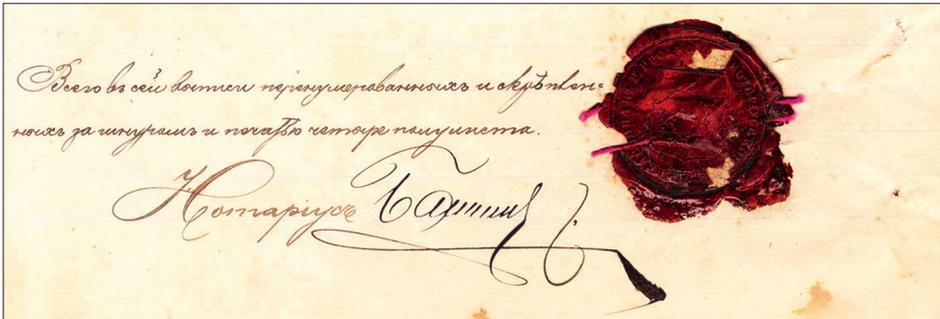 Всего въ сей выписи перенумерованныхъ и скрѣплен=
ныхъ за шнуромъ и печатью четыре полулиста.
Нотариусъ